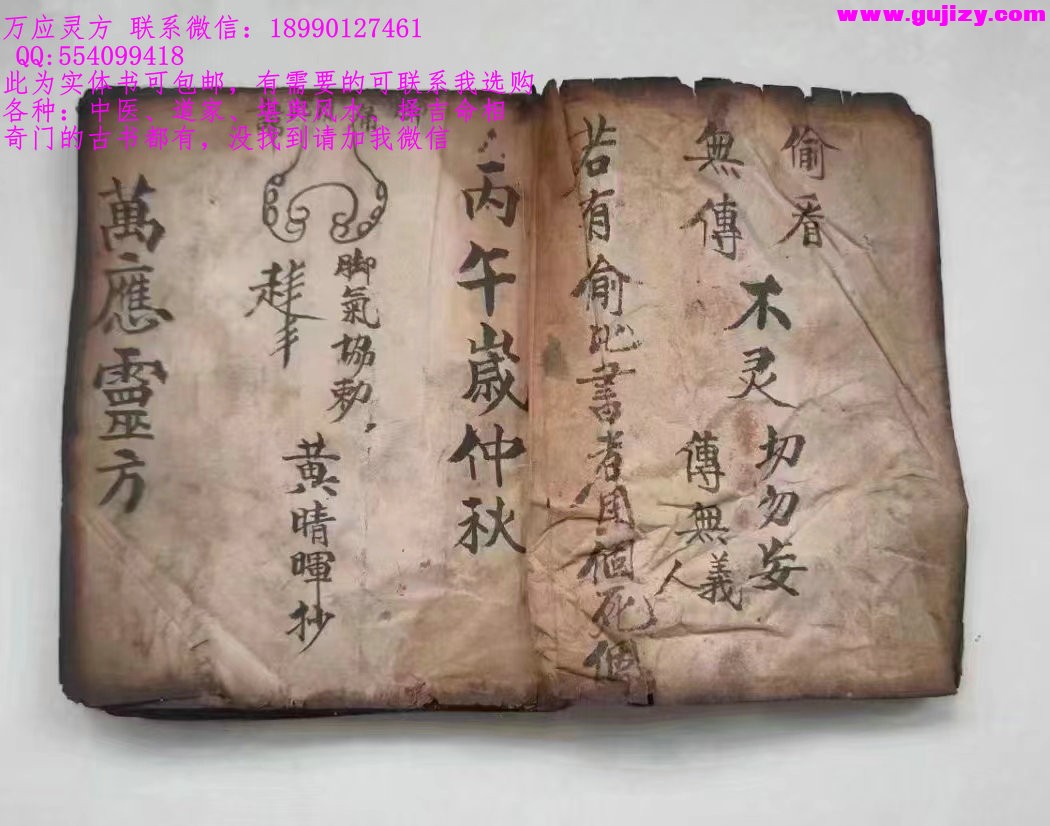 www.gujizy.com
万应灵方 联系微信：18990127461
QQ:554099418
此为实体书可包邮，有需要的可联系我选购
各种：中医、道家、堪舆风水、择吉命相
奇门的古书都有，没找到请加我微信
偷看
無傳
不灵
切勿妄
傳無義
人
若有偷此書者用個死個
丙午歲仲秋
脚氣協勅
黃晴暉抄
萬應靈方